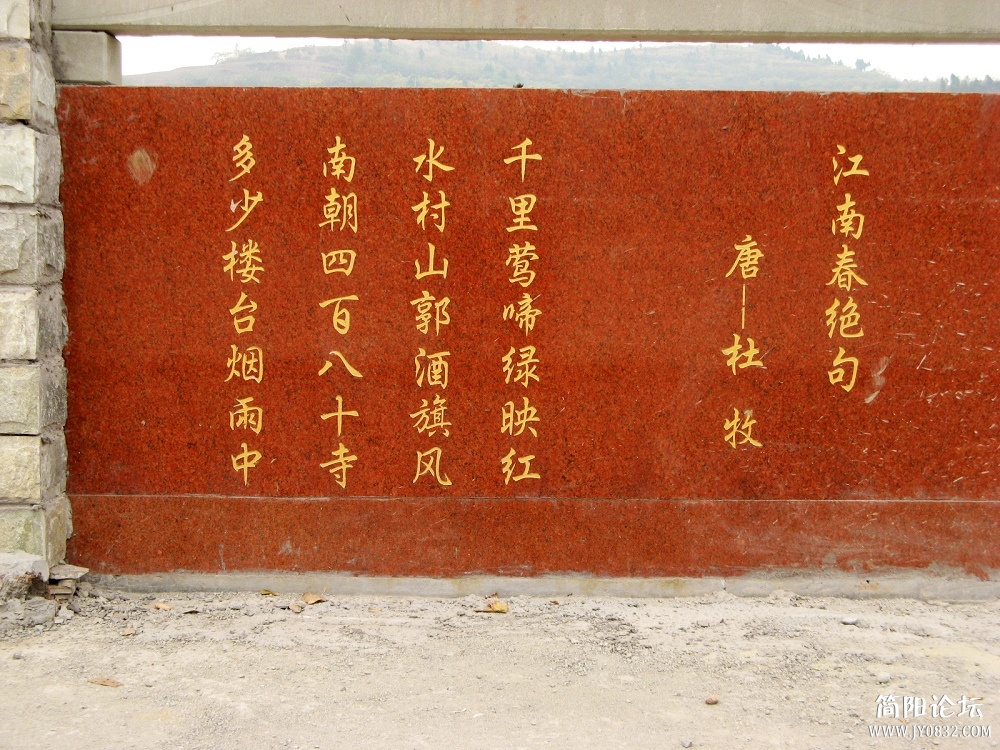 江南春绝句
唐—杜牧
千里莺啼绿映红
水村山郭酒旗风
南朝四百八十寺
多少楼台烟雨中
简阳论坛
WWW.JY0832.COM